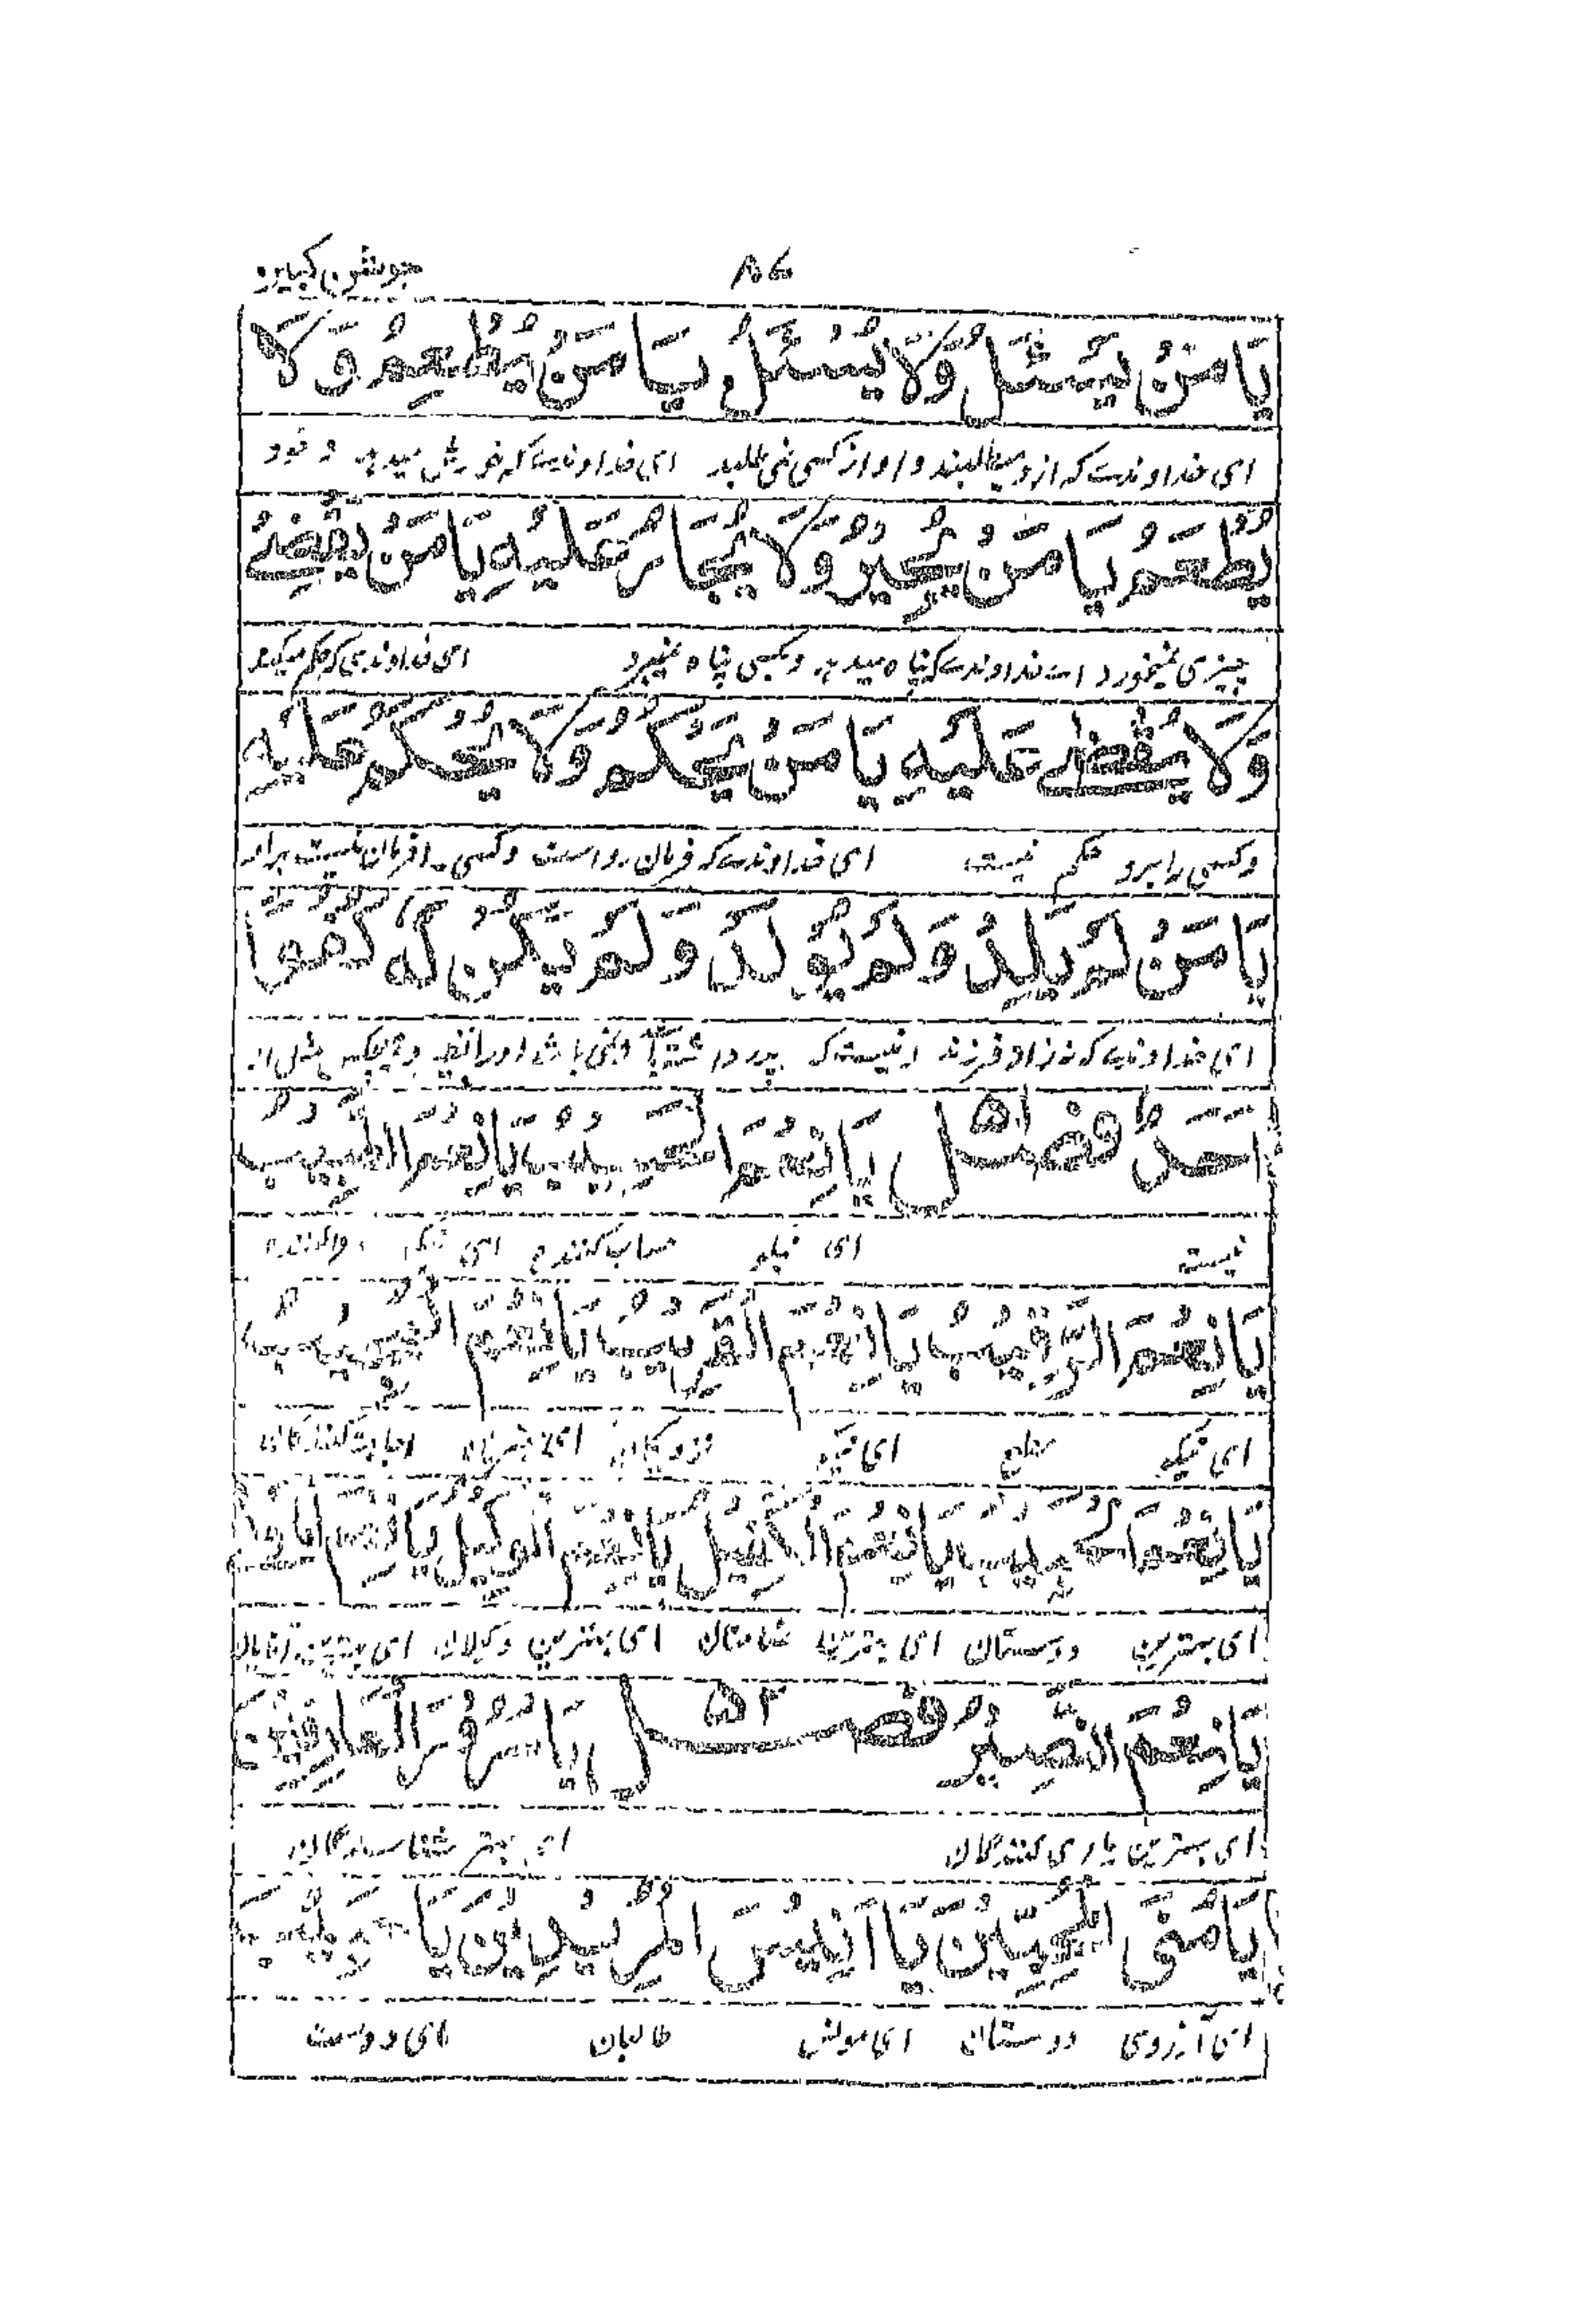 جوشن کبیر
يَا مَنْ يَسْئَلُ وَلَا يُسْئَلُ يَا مَنْ يُطْعِمُ وَلَا
ای خداوندے کہ از و میطلبند و او از کسی نمی طلبد ای خداوندے کہ خورش میدہد و خود
يُطْعَمُ يَا مَنْ يُجِيرُ وَلَا يُجَارُ عَلَيْهِ يَا مَنْ يَقْضِے
چیزی نمیخورد اے خداوندے کہ پناہ میدہد و بکسی پناہ نمیبرد ای خداوندی کہ حکم میکند
وَلَا يُقْضٰے عَلَيْهِ يَا مَنْ يَحْكُمُ وَلَا يُحْكَمُ عَلَيْهِ
و کسی را برو حکم نیست ای خداوندے کہ فرمان رواست و کسی را فرمان نیست بر او
يَا مَنْ لَمْ يَلِدْ وَلَمْ يُولَدْ وَلَمْ يَكُنْ لَهُ كُفُوًا
ای خداوندے کہ نزاد فرزند و نیست کہ پدر و
اَحَدٌ فصل ۵۱ يَا نِعْمَ الْحَسِيبُ يَا نِعْمَ الطَّبِيبُ
نیست ای نیکو حساب کنندہ ای نیکو دوا کنندہ
يَا نِعْمَ الرَّقِيبُ يَا نِعْمَ الْقَرِيبُ يَا نِعْمَ الْمُجِيبُ
ای نیکو مطلع ای نیکو نزدیکان ای بہترین اجابت کنندگان
يَا نِعْمَ الْحَبِيبُ يَا نِعْمَ الْكَفِيلُ يَا نِعْمَ الْوَكِيلُ يَا نِعْمَ الْمَوْلٰى
ای بہترین دوستان ای بہترین ضامنان ای بہترین وکیلان ای بہترین آقایان
يَا نِعْمَ النَّصِيرُ فصل ۵۲ يَا سُرُورَ الْعَارِفِينَ
ای بہترین یاری کنندگان ای شناسندگان
يَا مُنَى الْمُحِبِّينَ يَا اَنِيسَ الْمُرِيدِينَ يَا حَبِيبَ
ای آرزوی دوستان ای مونس طالبان ای دوست